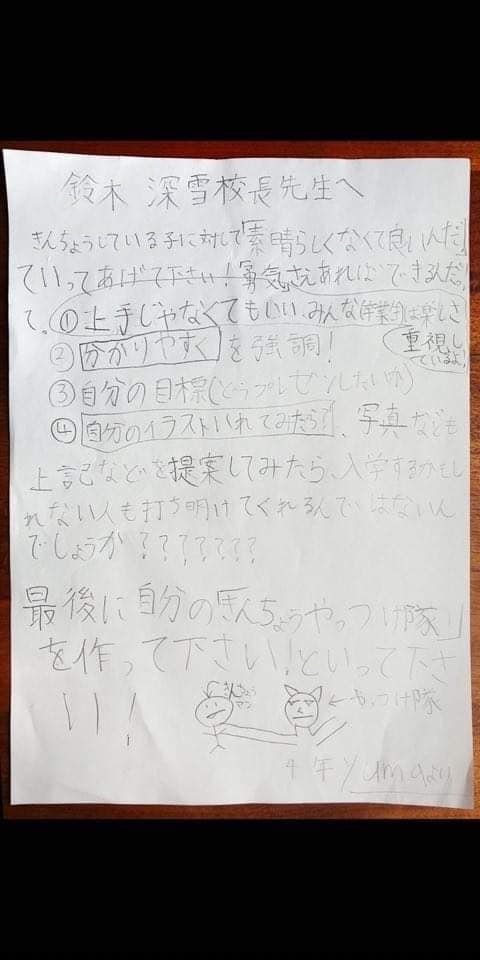 鈴木 深雪校長先生へ
きんちょうしている子に対して「素晴らしくなくて良いんだ」
ていってあげて下さい!勇気さえあればできるんだ!
て。①上手じゃなくてもいい、みんな(卒業生)は楽しさ
重視し
ているよ!
②分かりやすくを強調!
③自分の目標(どうプレゼンしたいか)
④自分のイラストいれてみたら?、写真なども
上記などを提案してみたら、入学するかもし
れない人も打ち明けてくれるんではないん
でしょうか???????
最後に自分の「きんちょうやっつけ隊」
を作って下さい!といって下さ
い!
きんちょう
マン
←やっつけ隊
4年Yumaより